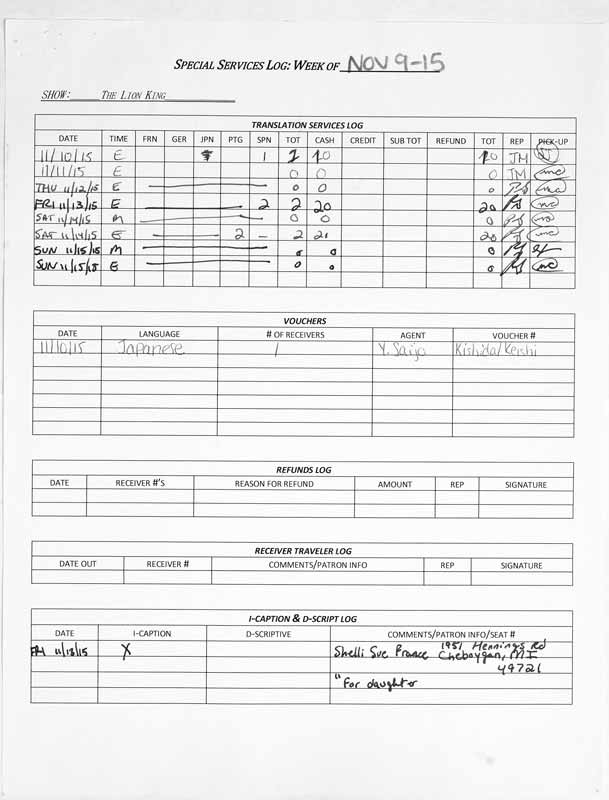 SPECIAL SERVICES LOG: WEEK OF NOV 9-15
SHOW: THE LION KING
TRANSLATION SERVICES LOG
DATE TIME FRN GER JPN PTG SPN TOT CASH CREDIT SUB TOT REFUND TOT REP PICK-UP
11/10/15 E 1 10 10 JM
11/11/15 E 0 0 0 JM mc
THU 11/12/15 E 0 0 0 mc
FRI 11/13/15 E 2 2 20 20 mc
SAT 11/14/15 M 0 0 0 mc
SAT 11/14/15 E 2 - 2 20 mc
SUN 11/15/15 M 0 0 0
SUN 11/15/15 E 0 0 0 mc
VOUCHERS
DATE LANGUAGE # OF RECEIVERS AGENT VOUCHER #
11/10/15 Japanese 1 Y. Saijo Kishida/Keishi
REFUNDS LOG
DATE RECEIVER #'S REASON FOR REFUND AMOUNT REP SIGNATURE
RECEIVER TRAVELER LOG
DATE OUT RECEIVER # COMMENTS/PATRON INFO REP SIGNATURE
I-CAPTION & D-SCRIPT LOG
DATE I-CAPTION D-SCRIPTIVE COMMENTS/PATRON INFO/SEAT #
FRI 11/13/15 X Shelli Sue Prance 1951 Hennings Rd
Cheboygan, MI
49721
"For daughter